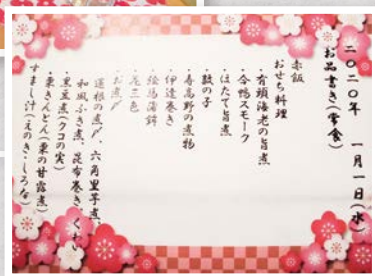 二〇二〇年 一月一日(水)
お品書き(常食)
赤飯
おせち料理
・有頭海老の旨煮
・合鴨スモーク
・ほたて旨煮
・数の子
・寿高野の煮物
・伊達巻き
・絵馬蒲鉾
・花三色
・お煮〆
蓮根の煮〆、六角里芋煮、
和風ふき煮、昆布巻き、くわい
・黒豆煮(クコの実)
・栗きんとん(栗の甘露煮)
すまし汁(えのき・しろな)